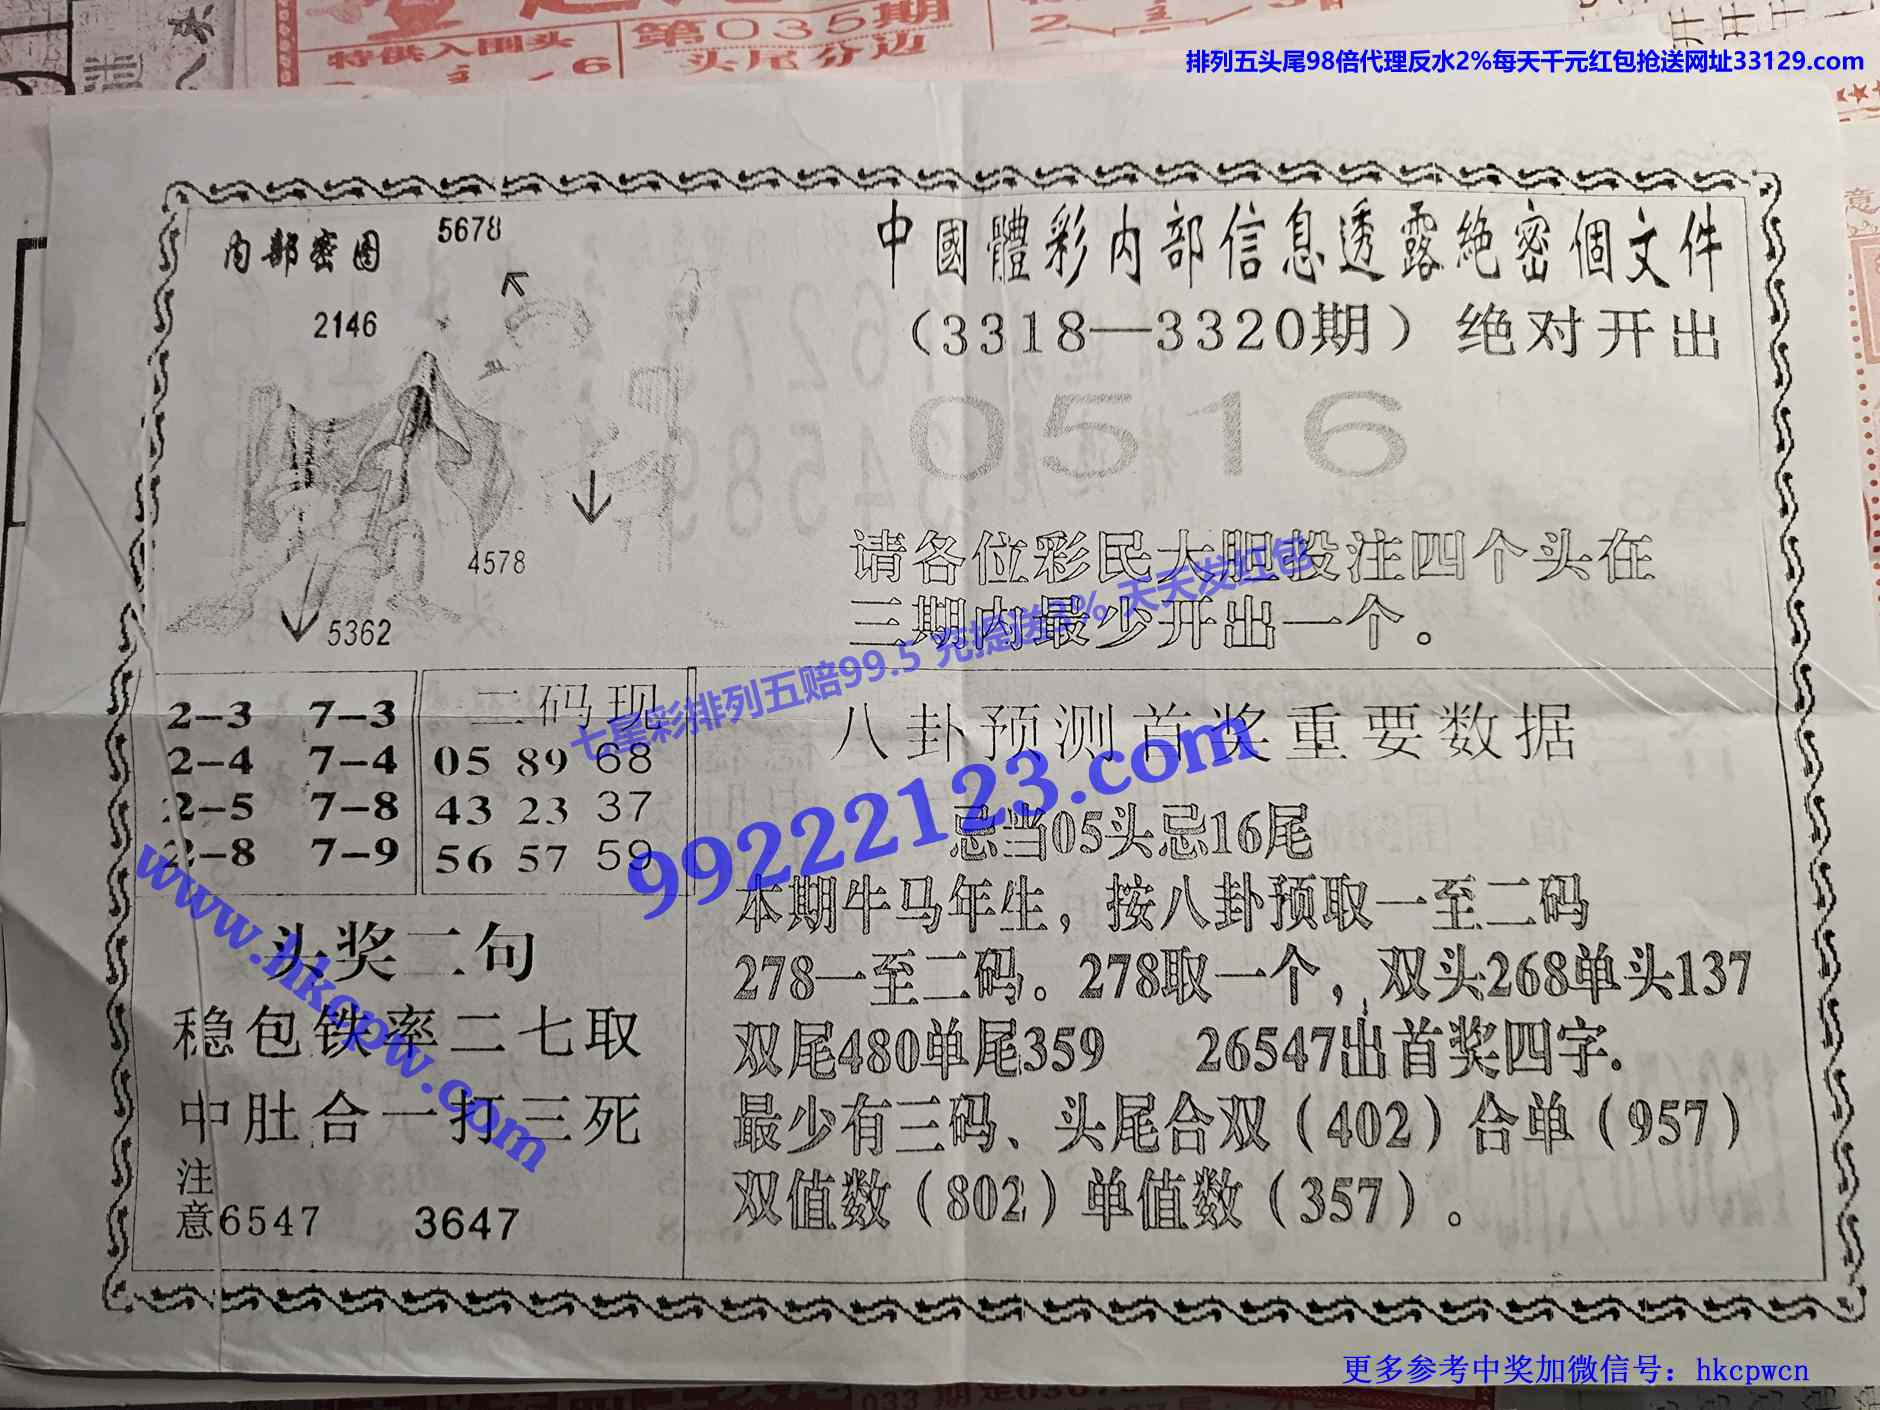 第035期
特供入围头
头尾分边
排列五头尾98倍代理反水2%每天千元红包抢送网址33129.com
内部密图
5678
2146
4578
5362
中國體彩内部信息透露絶密個文件
（3318—3320期）绝对开出
0516
请各位彩民大胆投注四个头在
三期内最少开出一个。
七星彩排列五赔99.5 充提送2% 天天发红包
99222123.com
www.hkcpw.com
2–3 7–3
2–4 7–4
2–5 7–8
2–8 7–9
二码现
05 89 68
43 23 37
56 57 59
头奖二句
稳包铁率二七取
中肚合一打三死
注意6547 3647
八卦预测首奖重要数据
忌当05头忌16尾
本期牛马年生，按八卦预取一至二码
278一至二码。278取一个，双头268单头137
双尾480单尾359 26547出首奖四字.
最少有三码、头尾合双（402）合单（957）
双值数（802）单值数（357）。
更多参考中奖加微信号：hkcpwcn